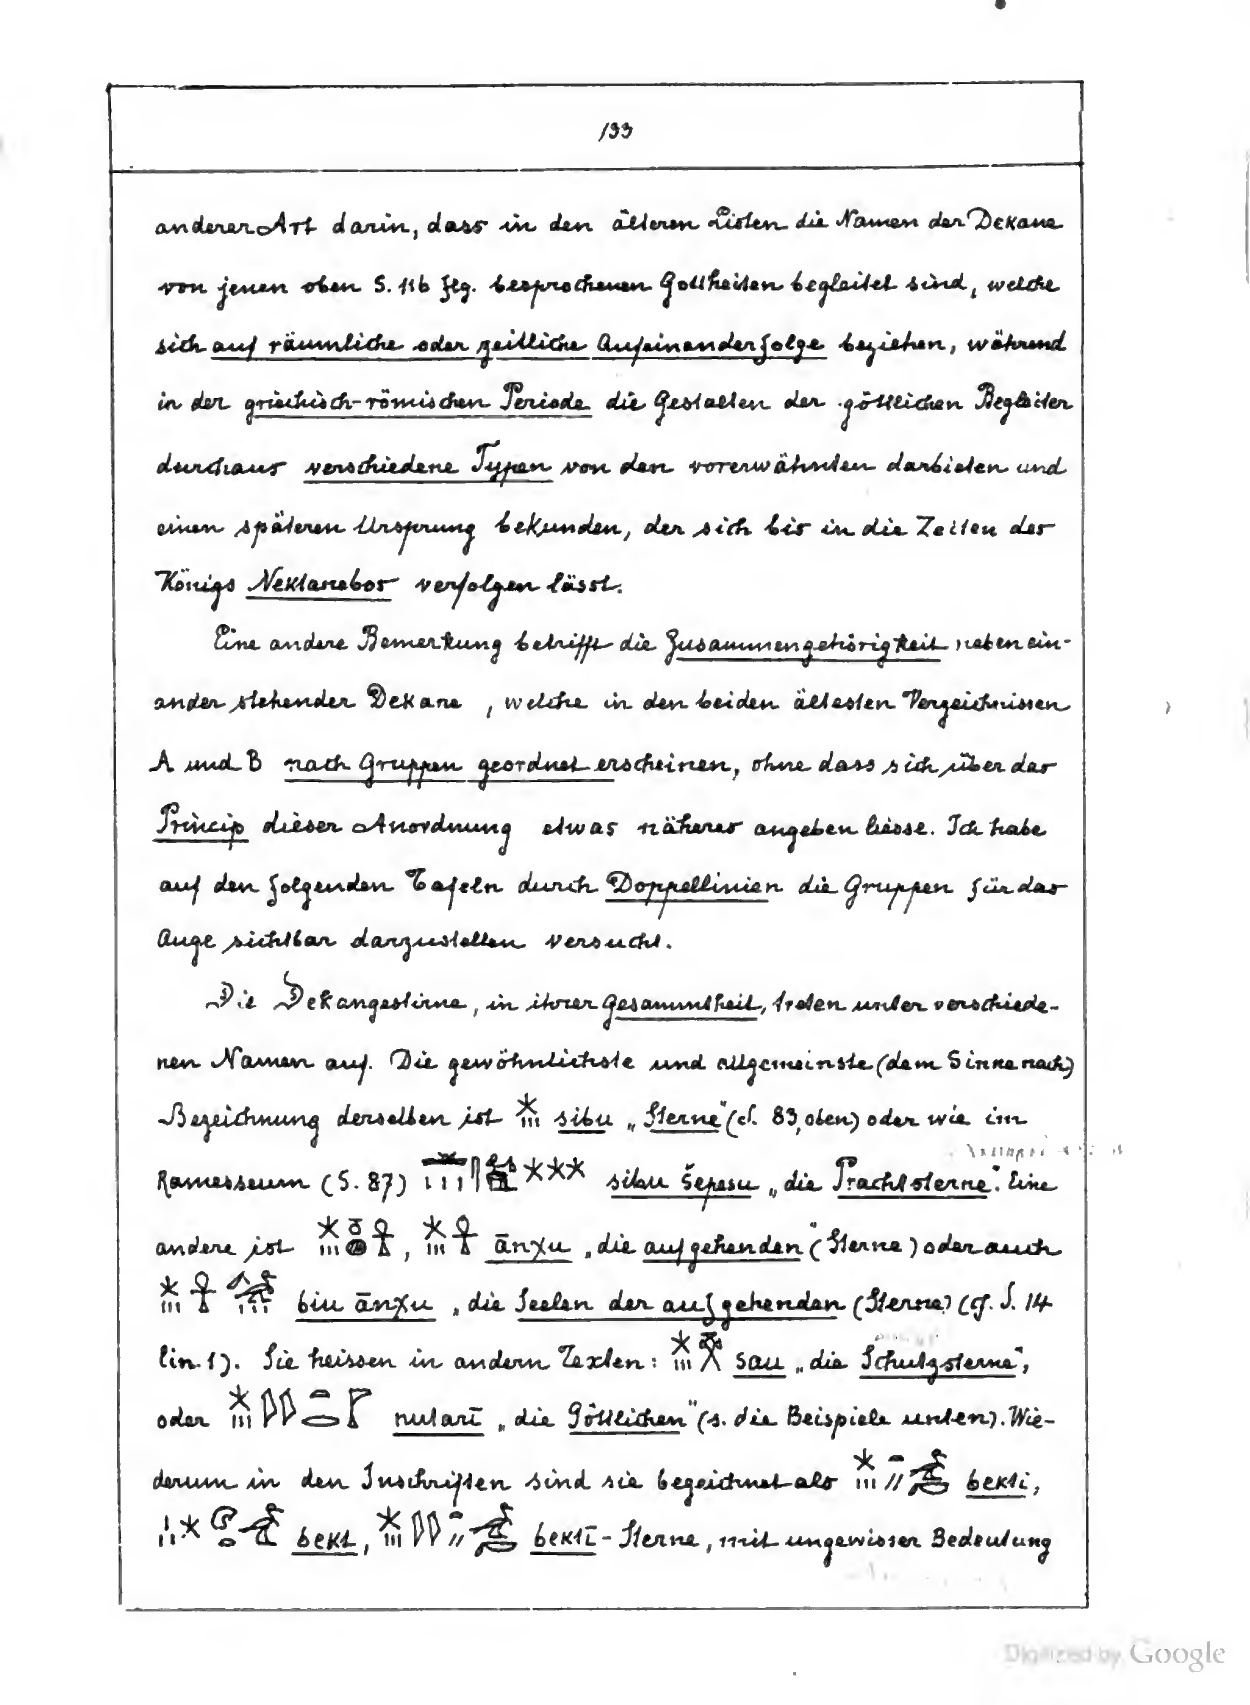 133
anderer Art darin, dass in den älteren Listen die Namen der Dekane
von jenen oben S. 116 flg. besprochenen Gottheiten begleitet sind, welche
sich auf räumliche oder zeitliche Aufeinanderfolge beziehen, während
in der griechisch-römischen Periode die Gestalten der göttlichen Begleiter
durchaus verschiedene Typen von den vorerwähnten darbieten und
einen späteren Ursprung bekunden, der sich bis in die Zeiten des
Königs Nektanebos verfolgen lässt.
Eine andere Bemerkung betrifft die Zusammengehörigkeit neben ein-
ander stehender Dekane, welche in den beiden ältesten Verzeichnissen
A und B nach Gruppen geordnet erscheinen, ohne dass sich über das
Princip dieser Anordnung etwas näheres angeben liesse. Ich habe
auf den folgenden Tafeln durch Doppellinien die Gruppen für das
Auge sichtbar darzustellen versucht.
Die Dekangestirne, in ihrer Gesammtheit, treten unter verschiede-
nen Namen auf. Die gewöhnlichste und allgemeinste (dem Sinne nach)
Bezeichnung derselben ist sibu „Sterne“ (cf. 83, oben) oder wie im
Ramesseum (S. 87) sibu šepesu „die Prachtsterne“. Eine
andere ist , ānχu „die aufgehenden“ (Sterne) oder auch
biu ānχu „die Seelen der aufgehenden (Sterne) (cf. S. 14
lin. 1). Sie heissen in andern Texten: sau „die Schutzsterne“,
oder nutarī „die Göttlichen“ (s. die Beispiele unten). Wie-
derum in den Inschriften sind sie bezeichnet als bekti,
bekt, bektī-Sterne, mit ungewisser Bedeutung
Digitized by Google